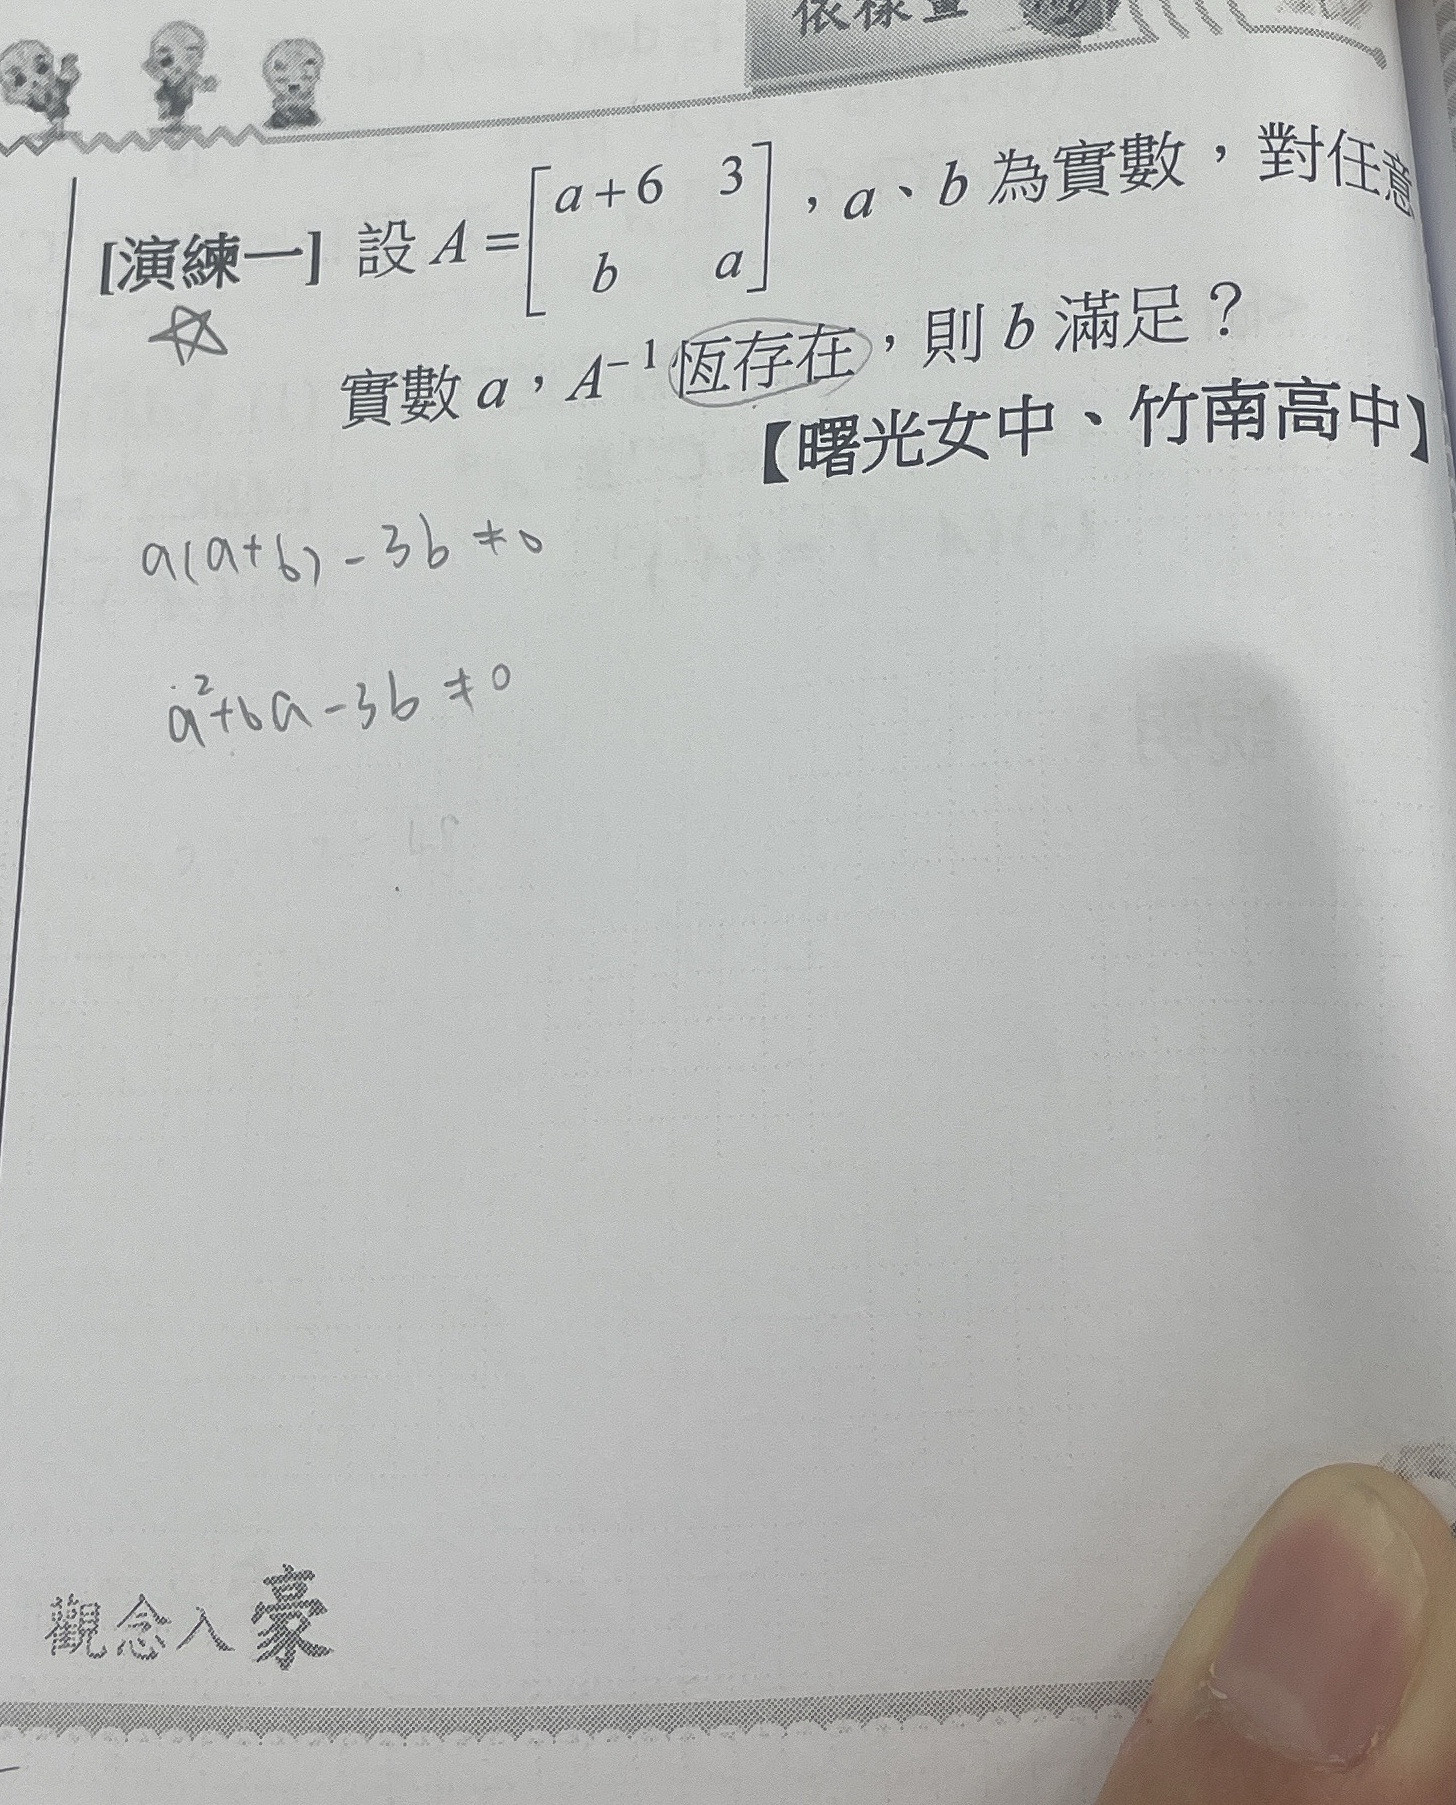 依樣畫
[演練一] 設 A = [a+6 3; b a],a、b 為實數,對任意
實數 a,A⁻¹ 恆存在,則 b 滿足?
【曙光女中、竹南高中】
a(a+6)-3b≠0
a²+6a-3b≠0
觀念入豪